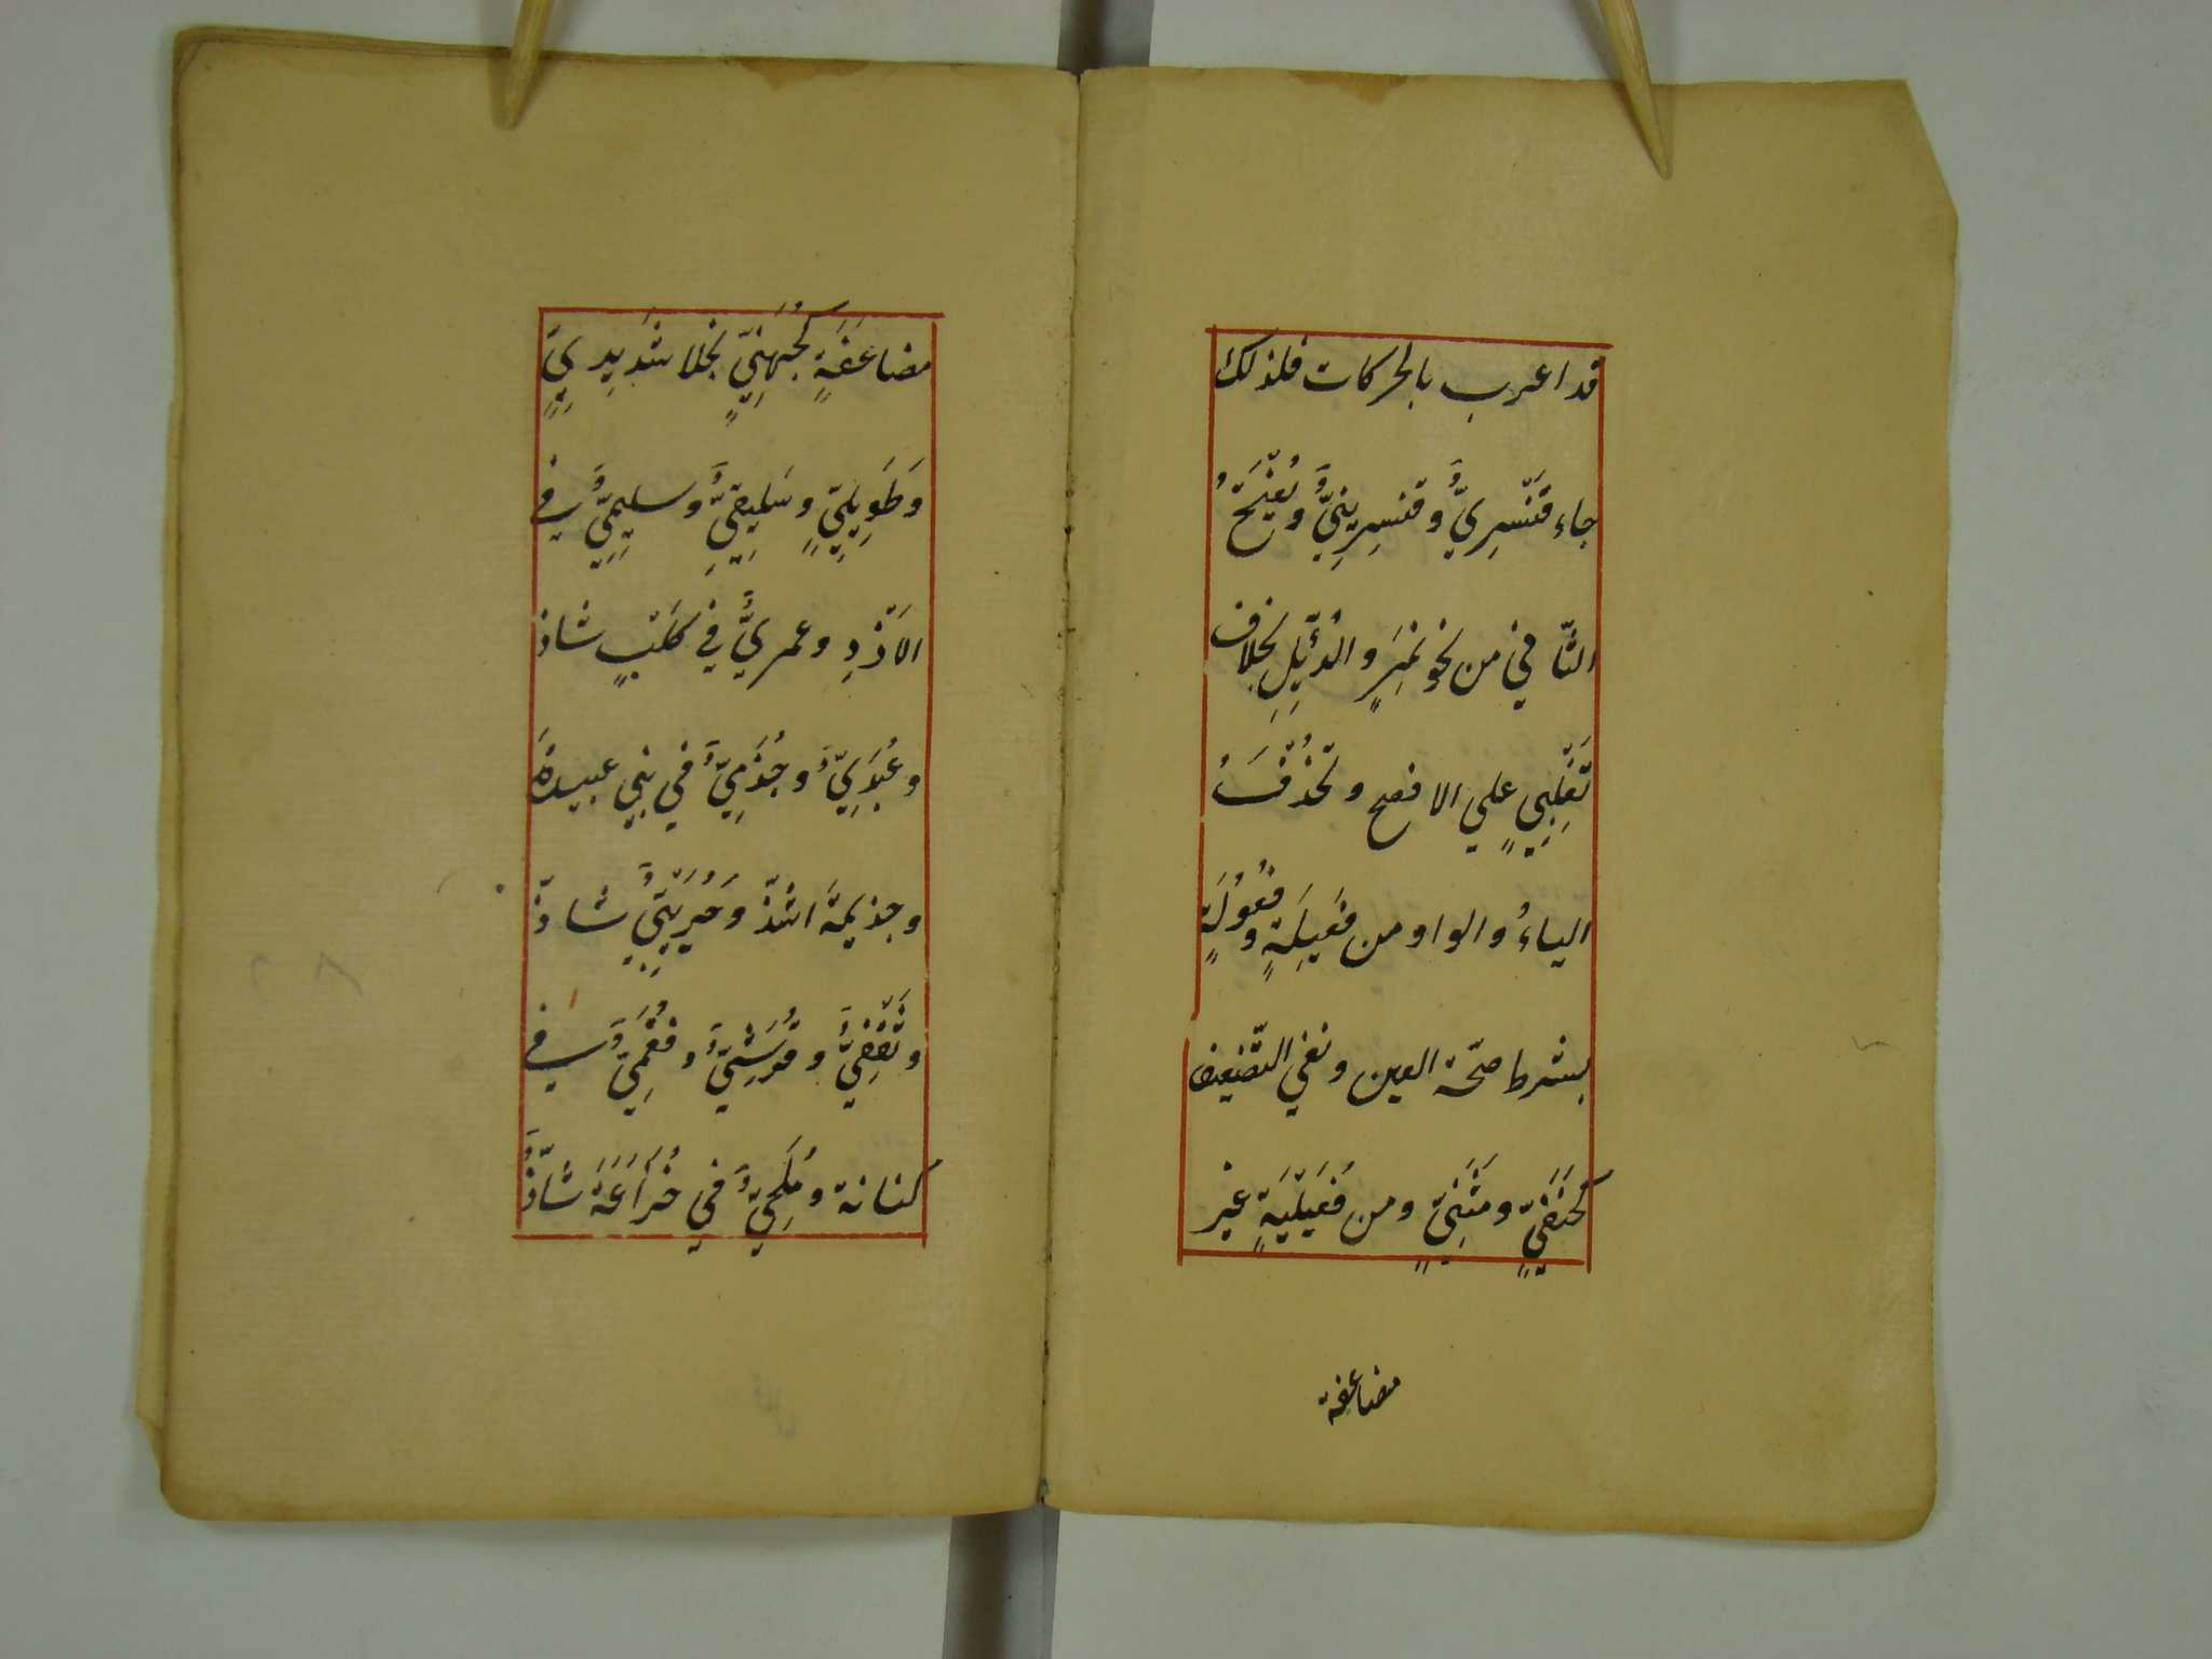 قد اعرب بالحركات فلذلك
جاء قنّسرِيٌّ وقنسرِينِيٌّ ويُفتَحُ
الثّاني من نحو نَمِرٍ والدُّئِلِ بخلاف
تَغْلِبِيٍّ علي الافصح وتُحْذَفُ
الياءُ والواو من فَعِيلَةٍ وفَعُولَةٍ
بشرط صحّة العين ونفي التّضعيف
كحَنَفِيٍّ وشَنَئِيٍّ ومن فُعَيْلَةٍ غير
مضاعفة
مضاعَفَةٍ كجُهَنِيٍّ بخلا شَدِيدِيٍّ
وَطَوِيلِيٍّ وسَلِيقِيٌّ وسليمِيٌّ في
الاَزْدِ وعميريٌّ في كَلْبٍ شاذ
وعُبَدِيٌّ وجُذَمِيٌّ في بني عبيدةَ
وجذيمةَ اشذّ وخُرَيْبِيٌّ شاذّ
وثَقَفِيٌّ وقُرَشِيٌّ وفُقَمِيٌّ في
كنانة ومُلَحِيٌّ في خُزَاعَةَ شاذٌّ